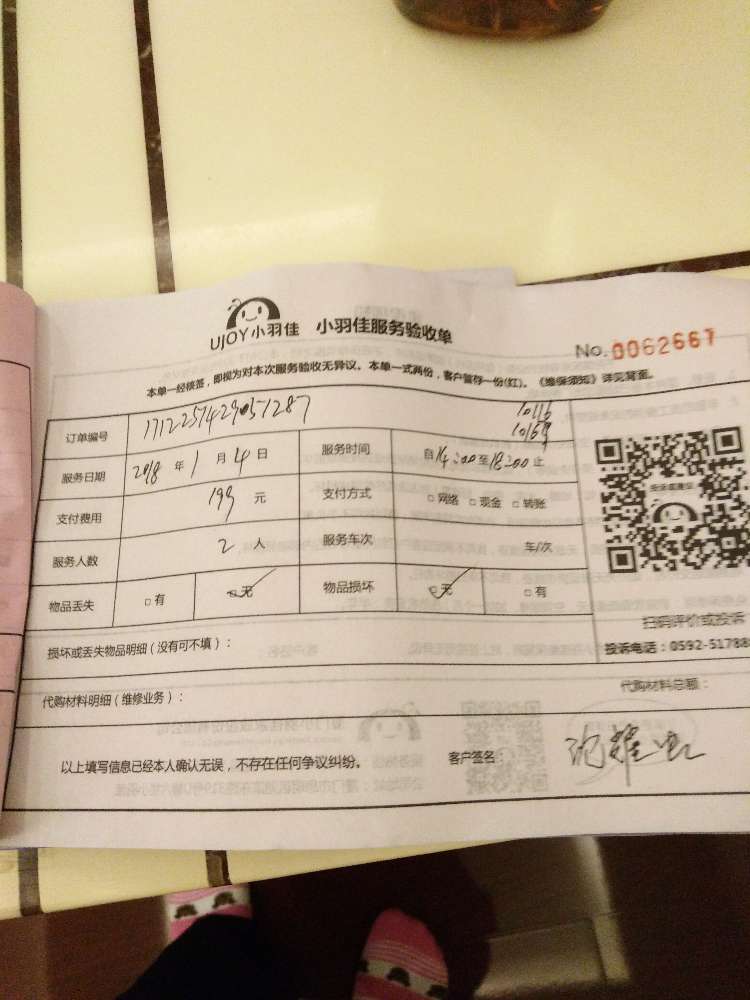 UJOY小羽佳 小羽佳服务验收单
No. 0062667
本单一经核签，即视为对本次服务验收无异议。本单一式两份，客户留存一份(红)。《维保须知》详见背面。
订单编号 1712257429051287 10116
10169
服务日期 2018 年 1 月 4 日 服务时间 自14:00至18:00止
支付费用 199 元 支付方式 □网络 □现金 □转账
服务人数 2 人 服务车次 车/次
物品丢失 □有 □无 物品损坏 □无 □有
扫码评价或投诉
损坏或丢失物品明细（没有可不填）： 投诉电话：0592-51788
代购材料明细（维修业务）： 代购材料总额：
以上填写信息已经本人确认无误，不存在任何争议纠纷。 客户签名：